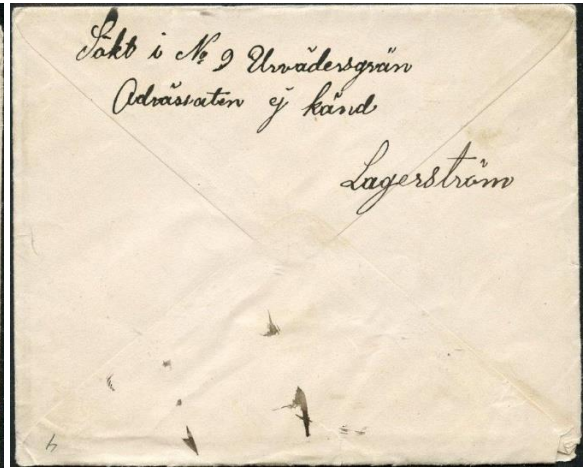 Sökt i No 9 Urvädersgrän
Adrässaten ej känd
Lagerström
4